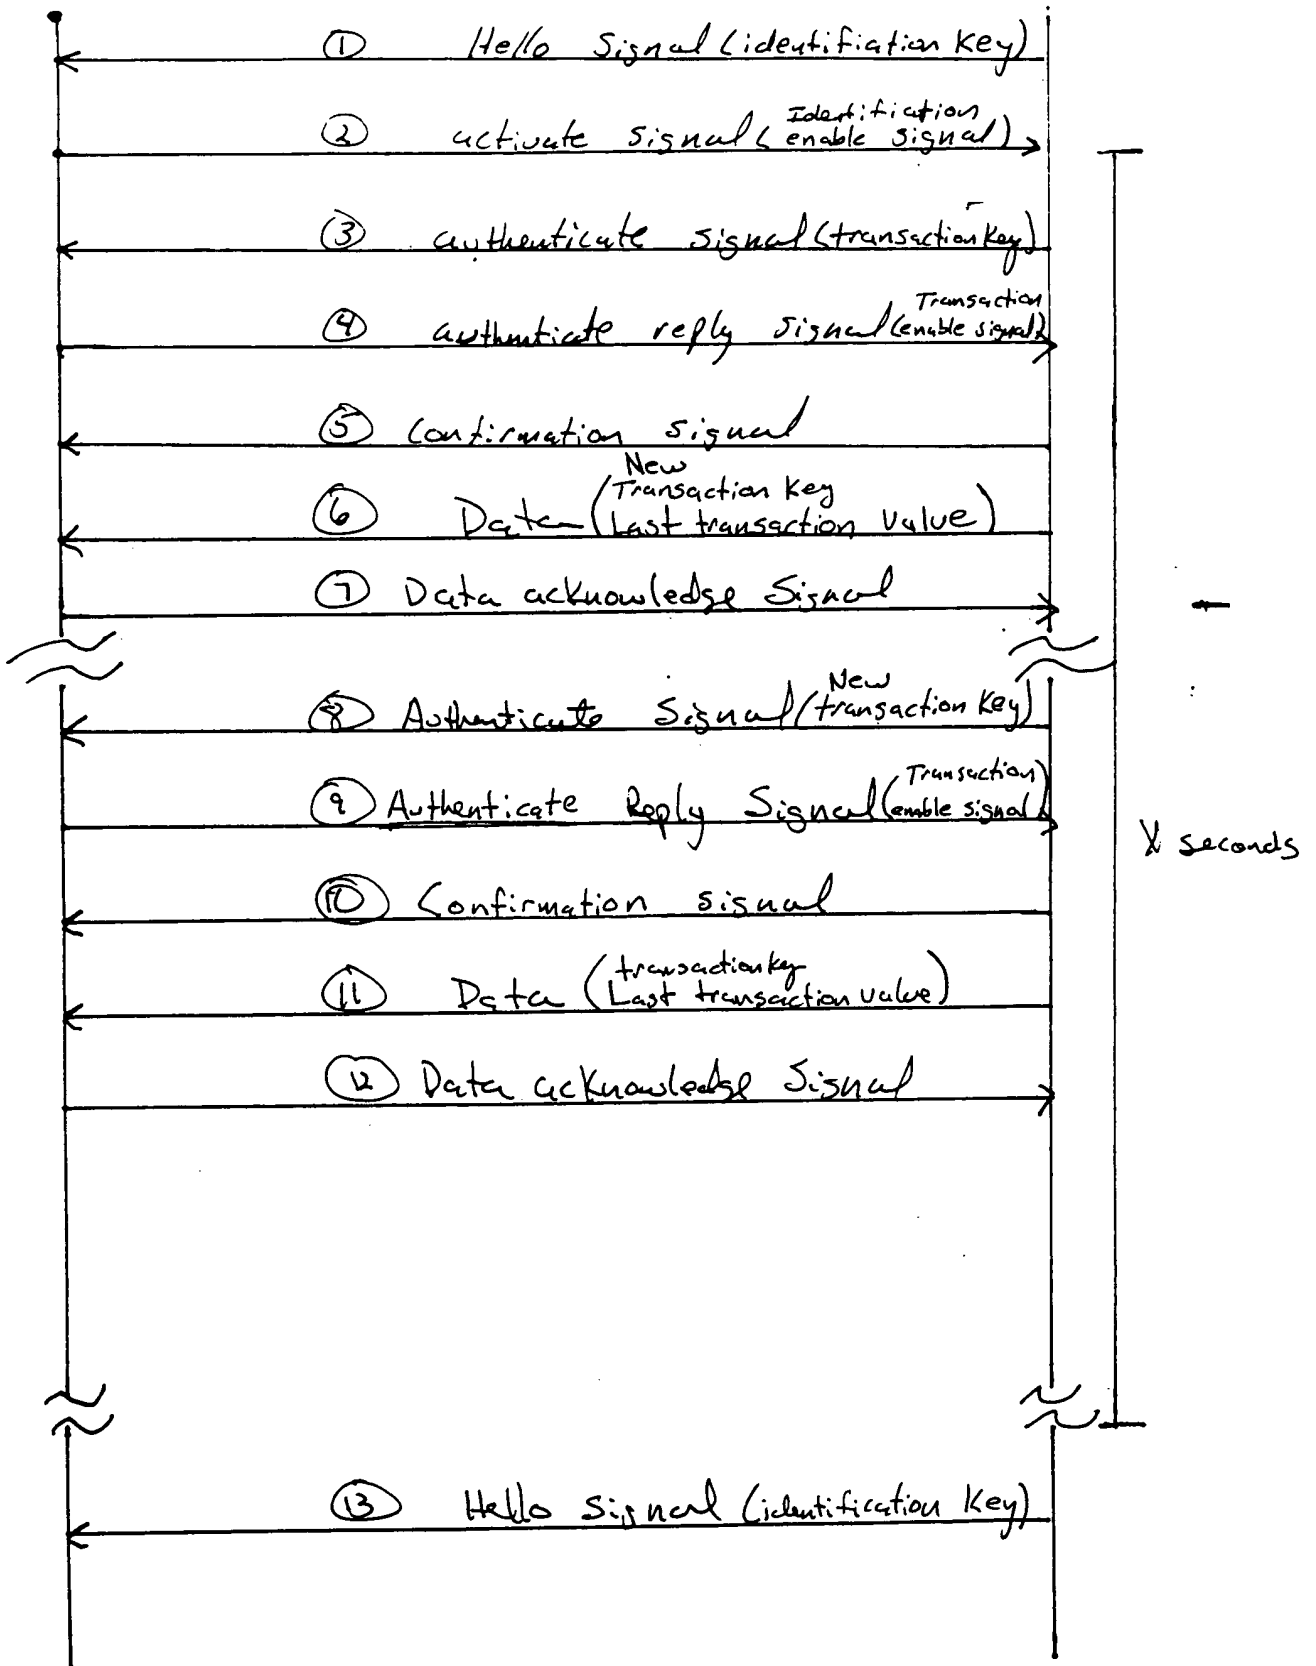 ① Hello Signal (identifiation Key)
② activate signal ( Identifiation
enable signal)
③ authenticate signal (transaction Key)
④ authenticate reply signal ( Transaction
enable signal)
⑤ Confirmation signal
⑥ Data ( New
Transaction Key
Last transaction value)
⑦ Data acknowledge Signal
⑧ Authenticate Signal ( New
transaction Key)
⑨ Authenticate Reply Signal ( Transaction
enable signal)
X seconds
⑩ Confirmation signal
⑪ Data ( transaction key
Last transaction value)
⑫ Data acknowledge Signal
⑬ Hello Signal (identification Key)